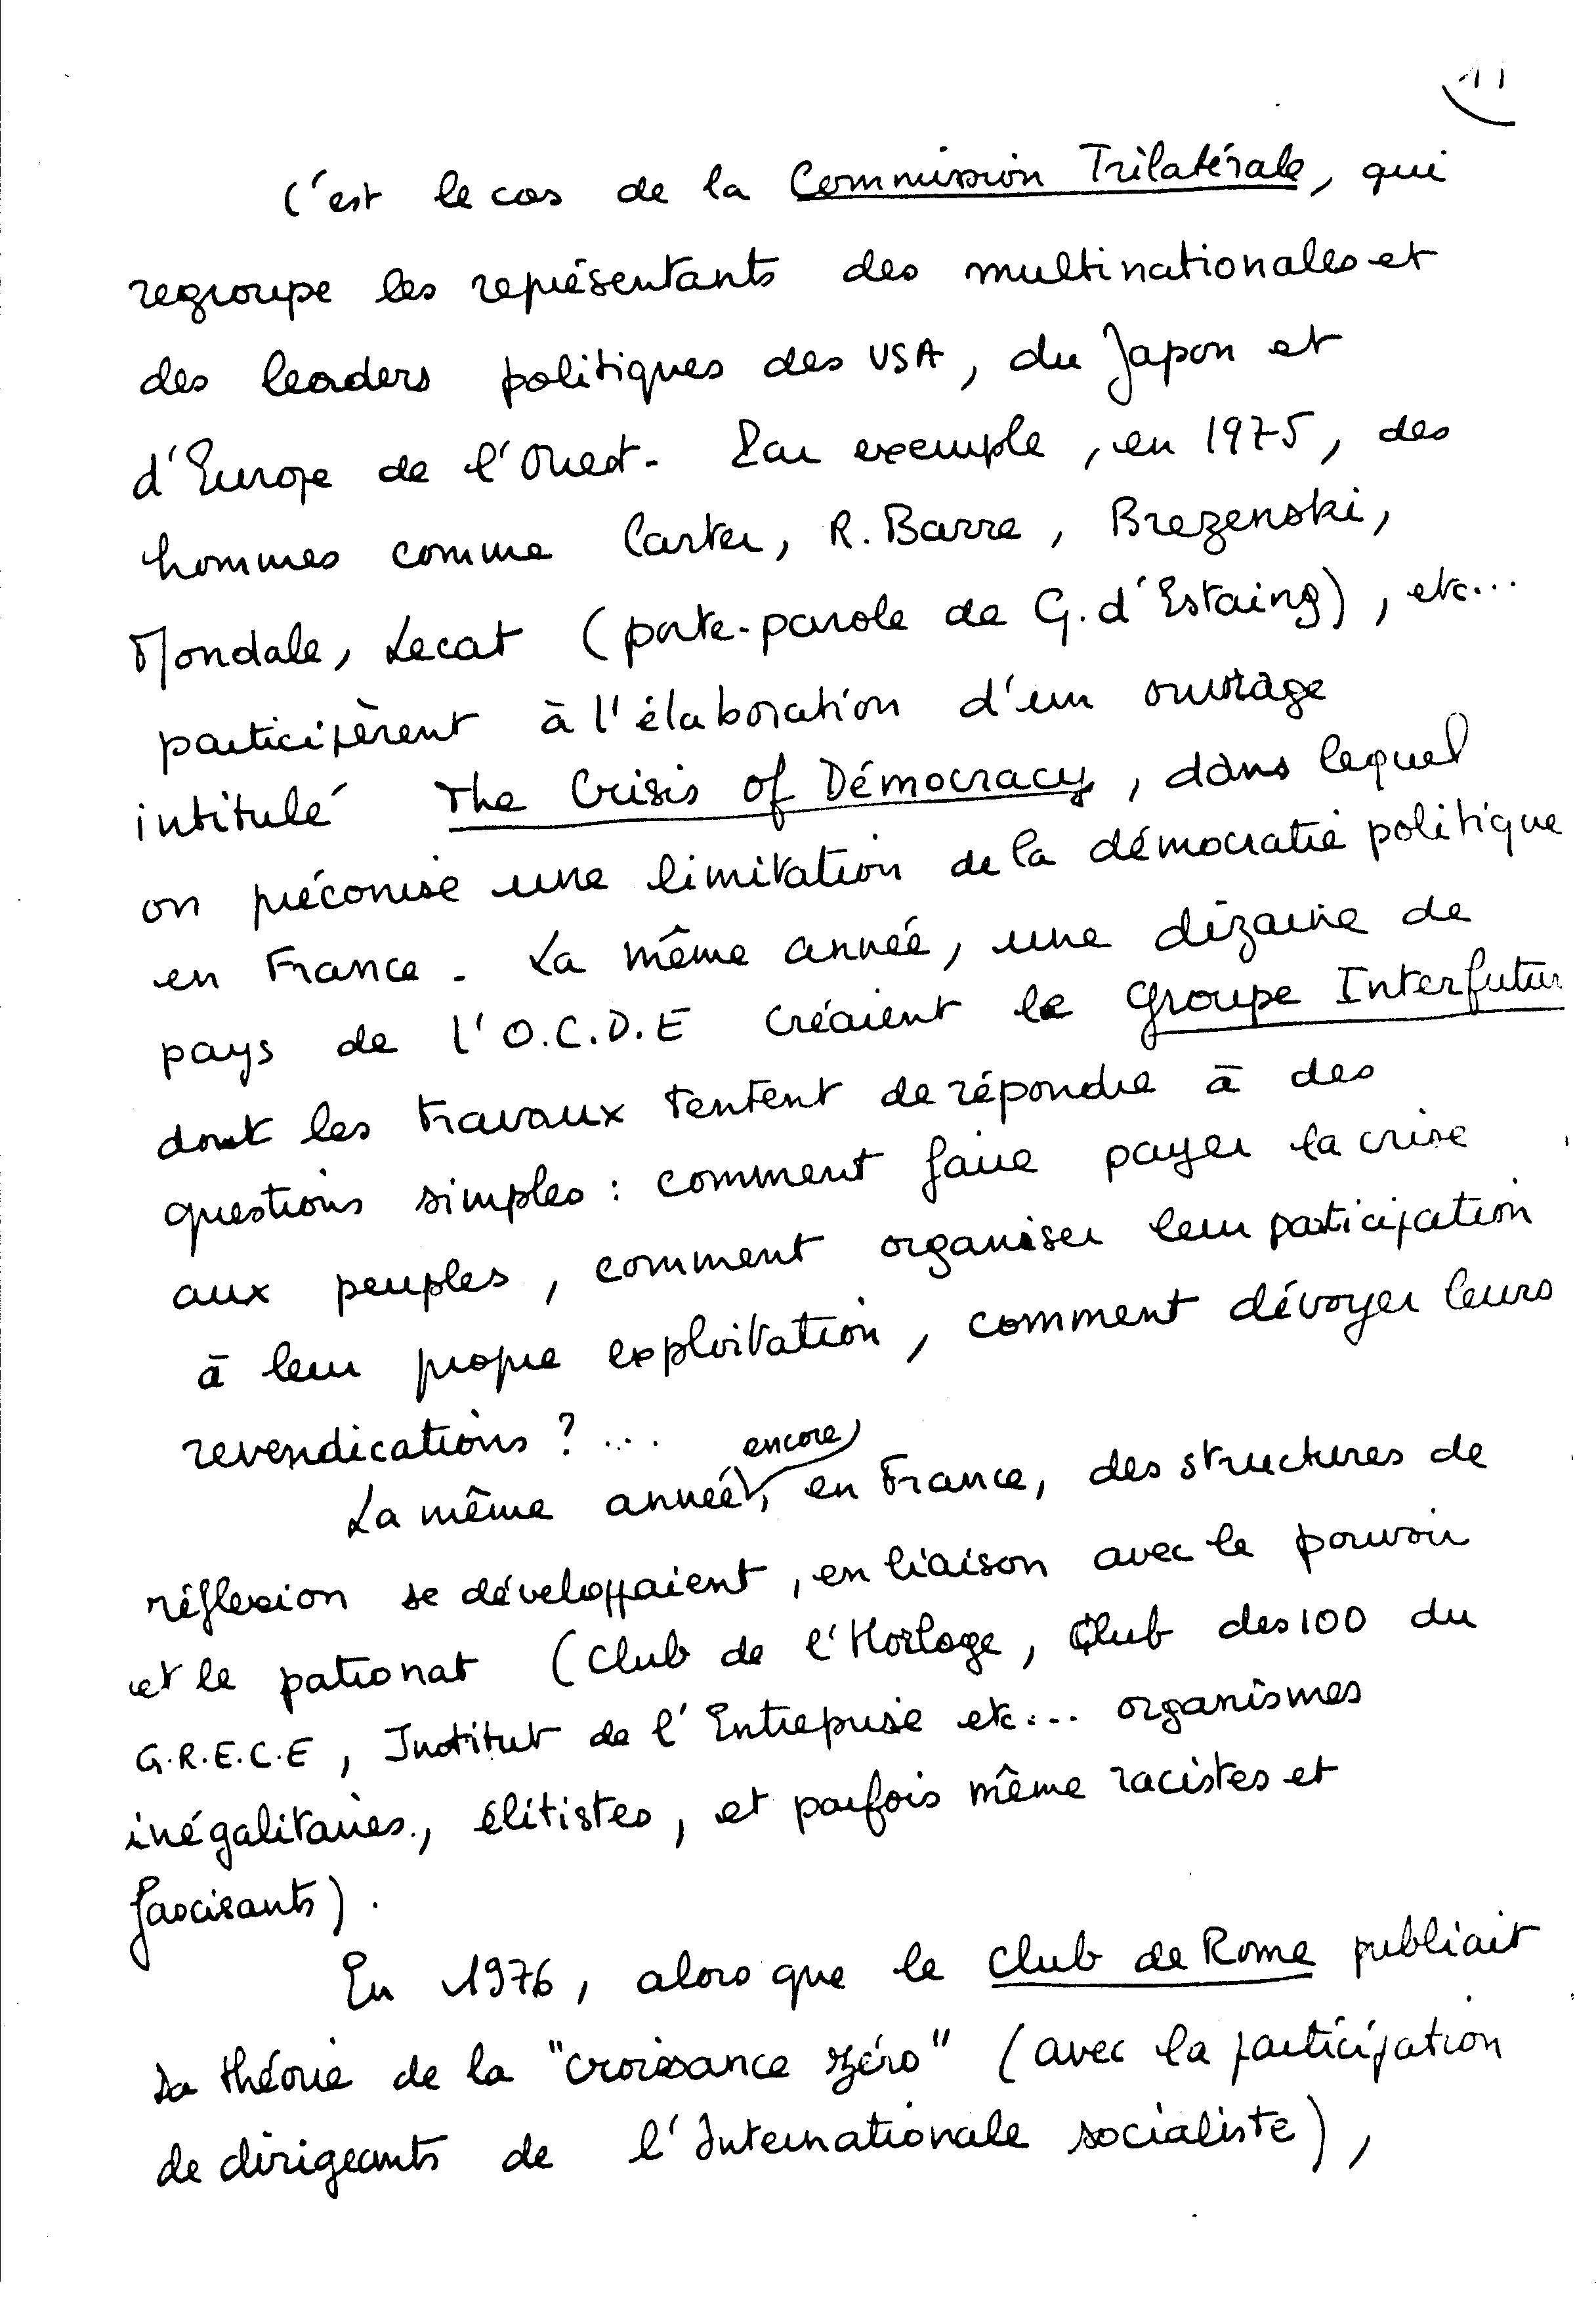 11
C'est le cas de la Commission Trilatérale, qui
regroupe les représentants des multinationales et
des leaders politiques des USA, du Japon et
d'Europe de l'Ouest. Par exemple, en 1975, des
hommes comme Carter, R. Barre, Brezenski,
Mondale, Lecat (porte-parole de G. d'Estaing), etc...
participèrent à l'élaboration d'un ouvrage
intitulé The Crisis of Démocracy, dans lequel
on préconise une limitation de la démocratie politique
en France. La même année, une dizaine de
pays de l'O.C.D.E créaient le groupe Interfutur
dont les travaux tentent de répondre à des
questions simples : comment faire payer la crise
aux peuples, comment organiser leur participation
à leur propre exploitation, comment dévoyer leurs
revendications ? ...
La même année encore, en France, des structures de
réflexion se développaient, en liaison avec le pouvoir
et le patronat (Club de l'Horloge, Club des 100 du
G.R.E.C.E, Institut de l'Entreprise etc... organismes
inégalitaires, élitistes, et parfois même racistes et
fascisants).
En 1976, alors que le Club de Rome publiait
sa théorie de la "croissance zéro" (avec la participation
de dirigeants de l'Internationale socialiste),